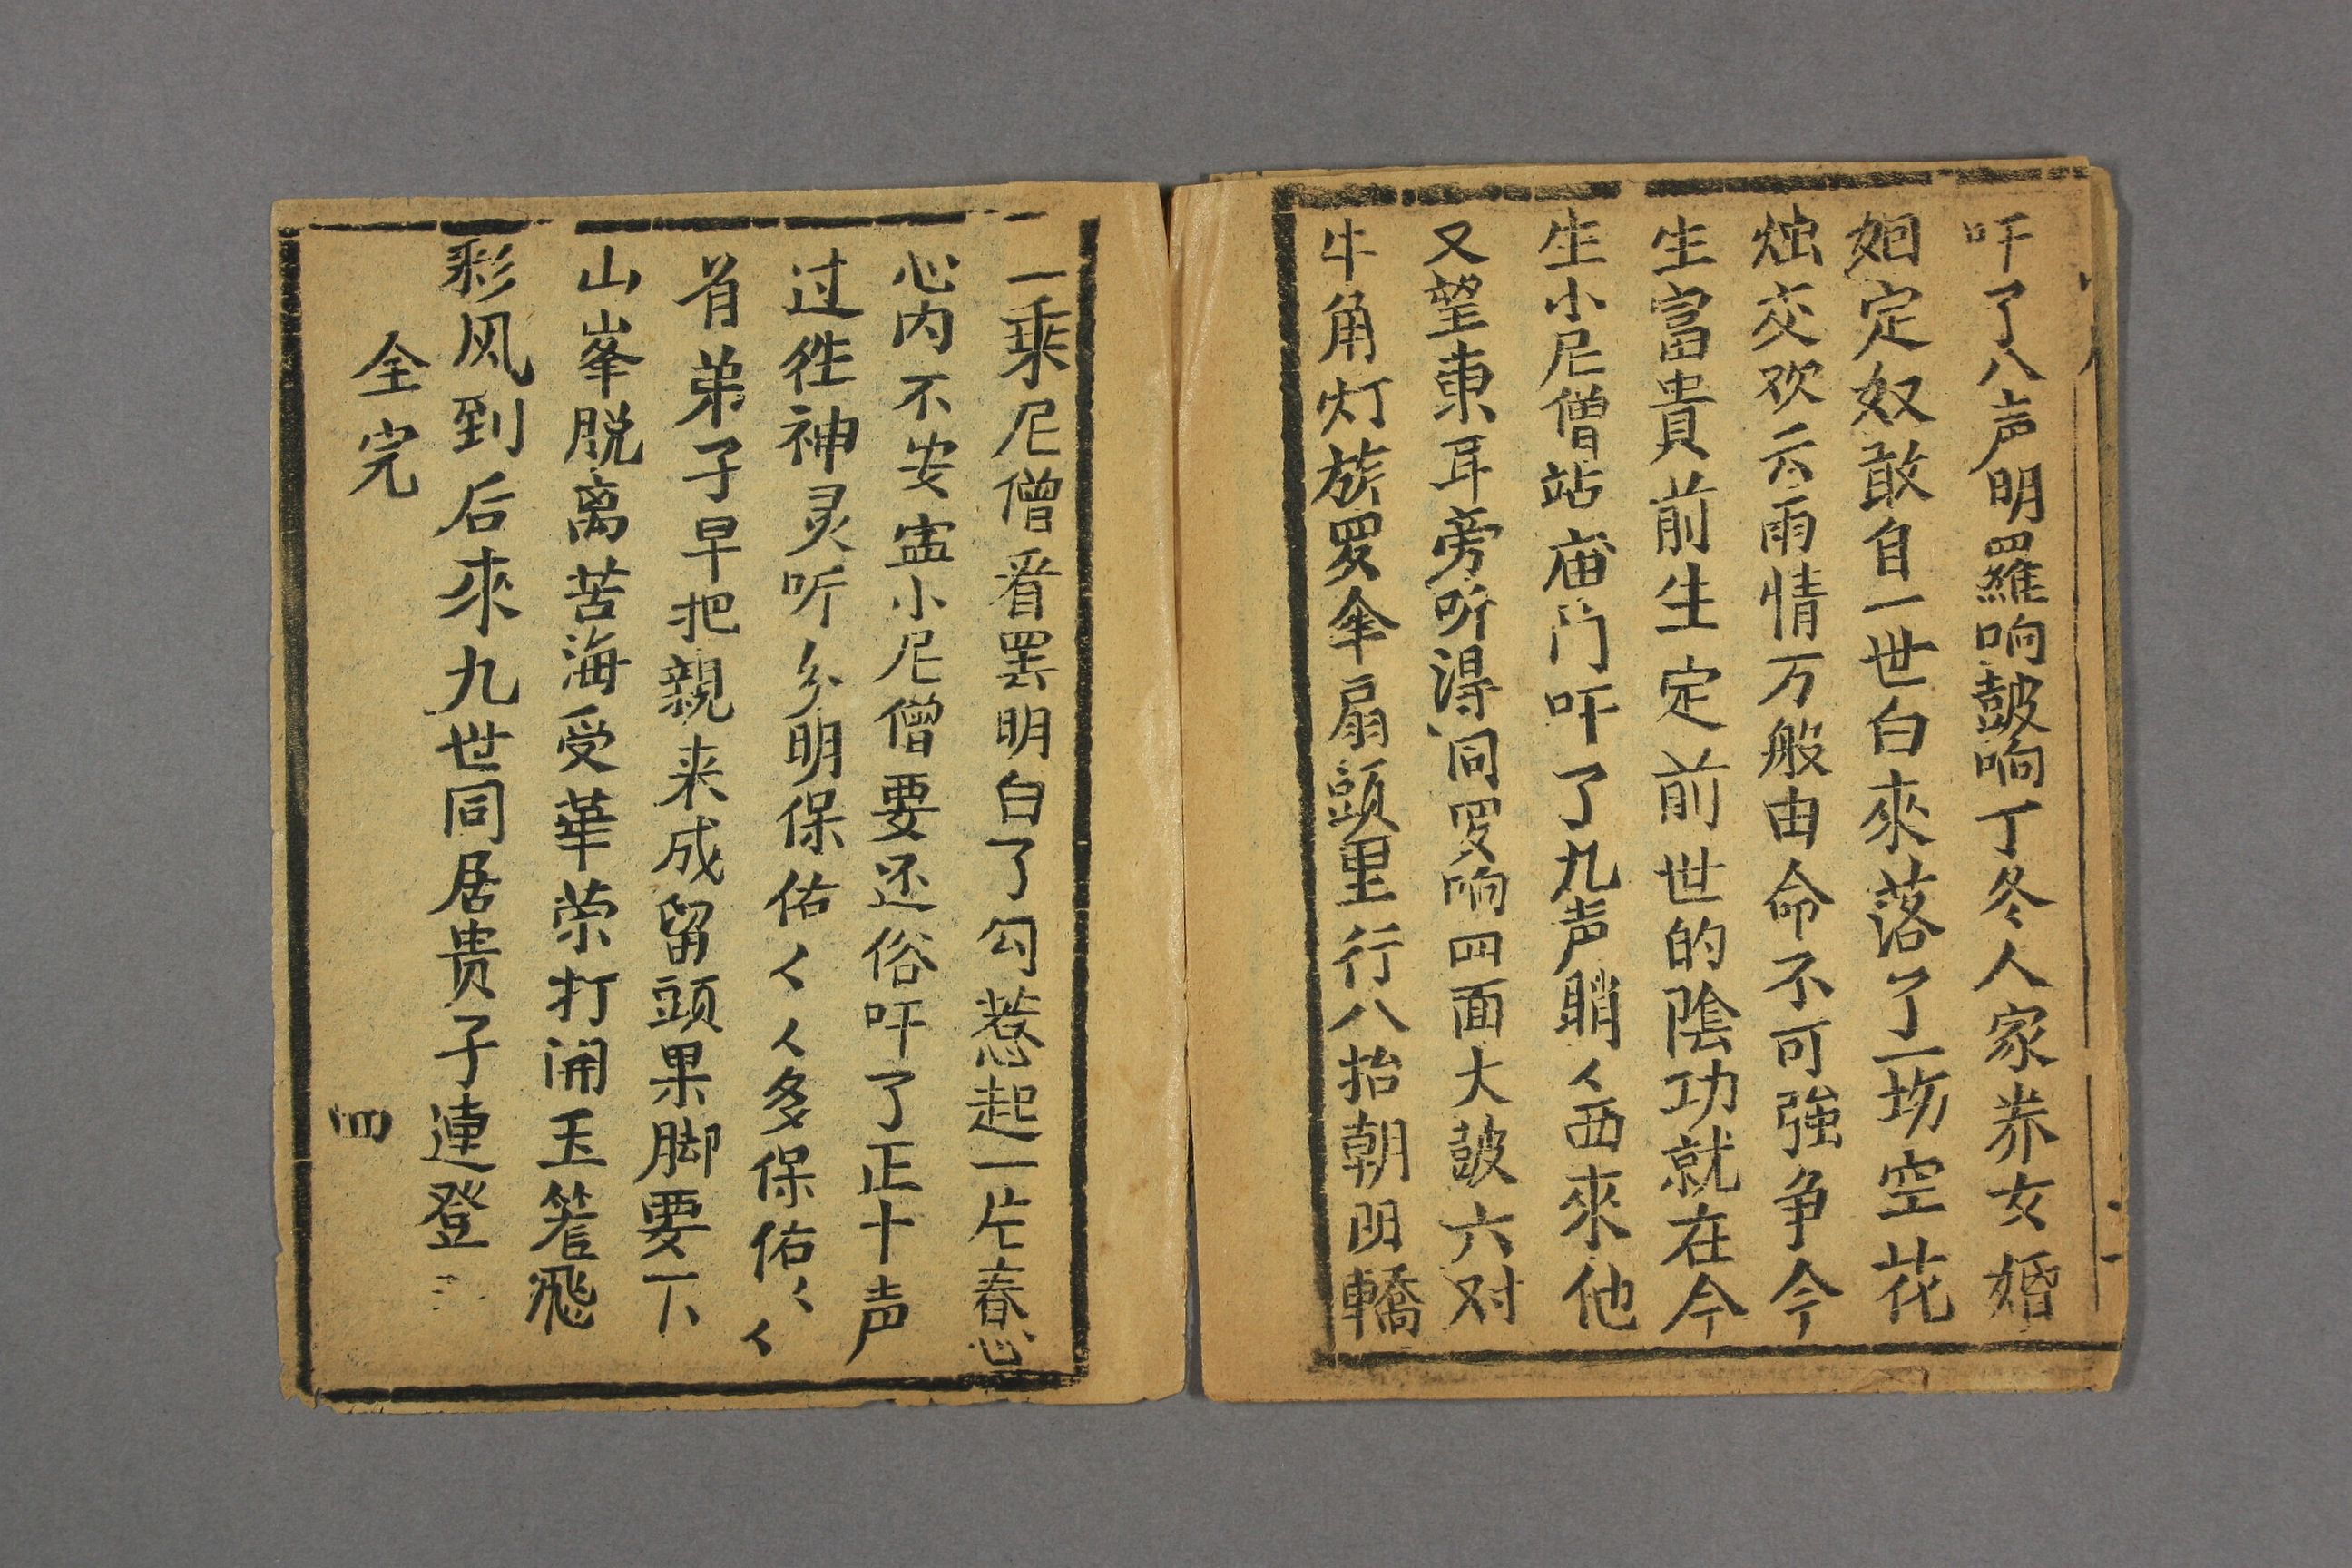 吁了八声明羅响鼓响丁冬人家养女婚
姻定奴敢自一世白來落了一塲空花
烛交欢云雨情万般由命不可强争今
生富貴前生定前世的隂功就在今
生小尼僧站庙门吁了九声睄〻西來他
又望東耳旁听淂同罗响四面大鼓六对
牛角灯族罗伞扇頭里行八抬朝阴轎
一乘尼僧看罢明白了勾惹起一片春心
心内不安寍小尼僧要还俗吁了正十声
过徃神灵听分明保佑〻〻多保佑〻〻
有弟子早把親来成留頭果脚要下
山峯脱离苦海受華荣打開玉笼飛
彩凤到后來九世同居贵子連登
全完
四